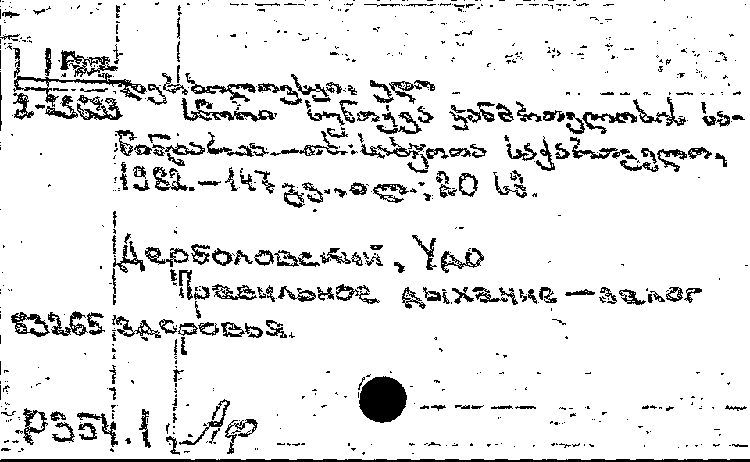 დერბოლოვსკი, უდო
2-23633 სწორი სუნთქვა ჯანმრთელობის სა-
წინდარია.—თბ.:საბჭოთა საქართველო,
1982.—147 გვ.,ილ.;20 სმ.
Дерболовский, Удо
Правильное дыхание—залог
83265 здоровья.
P354.1